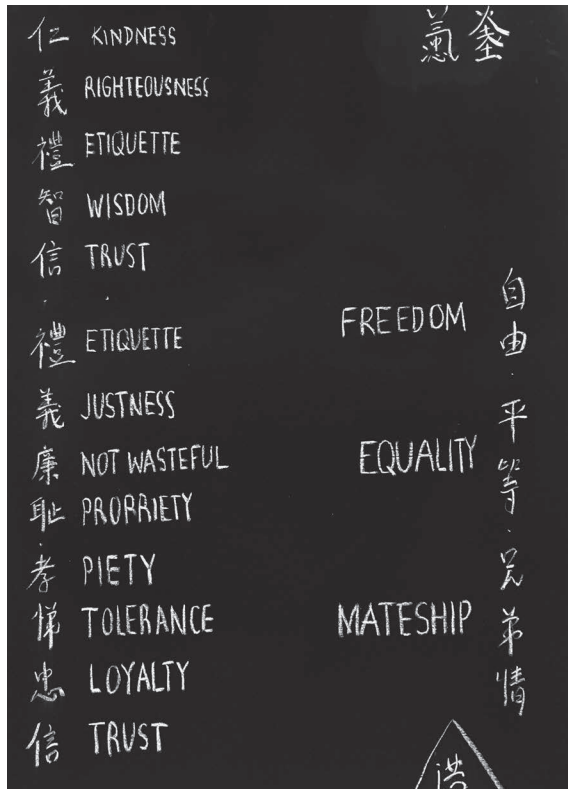 仁 KINDNESS
義 RIGHTEOUSNESS
禮 ETIQUETTE
智 WISDOM
信 TRUST
禮 ETIQUETTE
義 JUSTNESS
廉 NOT WASTEFUL
耻 PROPRIETY
孝 PIETY
悌 TOLERANCE
忠 LOYALTY
信 TRUST
FREEDOM 自由
EQUALITY 平等
MATESHIP 兄弟情